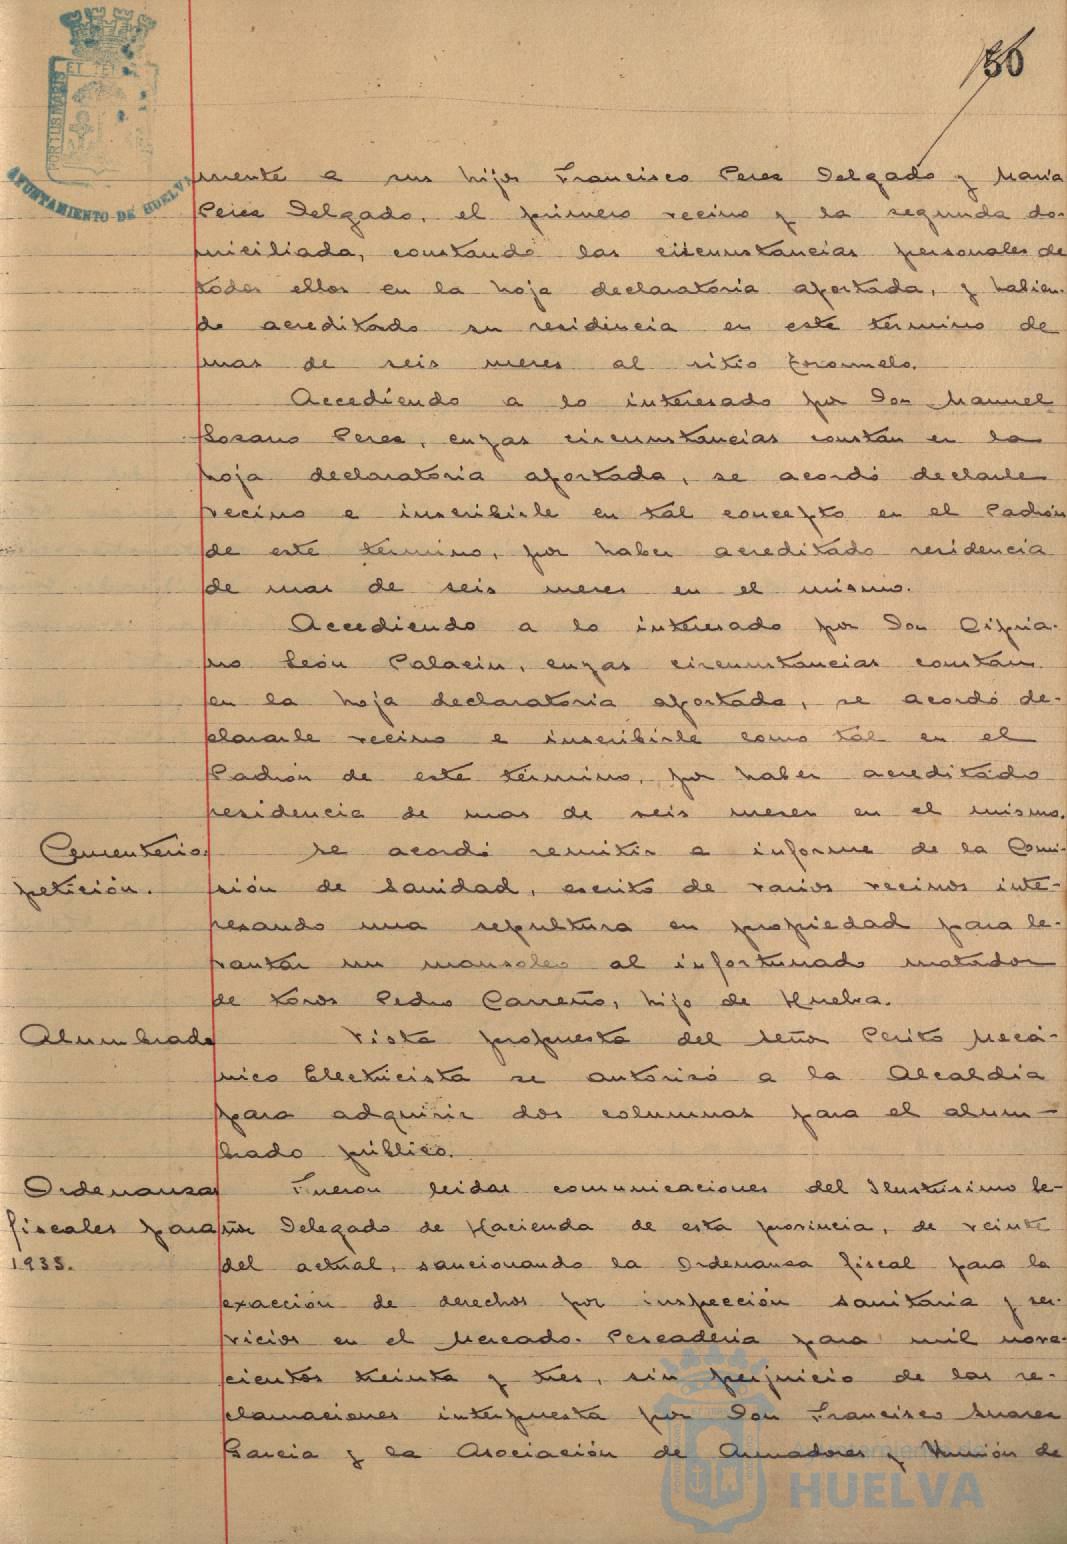 50
ET TE
PORTUS MARIS
AYUNTAMIENTO DE HUELVA
mente a sus hijos Francisco Perez Delgado y Maria
Perez Delgado, el primero vecino y la segunda do-
miciliada, constando las circunstancias personales de
todos ellos en la hoja declaratoria aportada, y habien-
do acreditado su residencia en este término de
mas de seis meses al sitio
Accediendo a lo interesado por Don Manuel
Lozano Perez, cuyas circunstancias constan en la
hoja declaratoria aportada, se acordó declarle
vecino e inscribirle en tal concepto en el Padrón
de este término, por haber acreditado residencia
de mas de seis meses en el mismo.
Accediendo a lo interesado por Don Cipria-
no León Palacin, cuyas circunstancias constan
en la hoja declaratoria aportada, se acordó de-
clararle vecino e inscribirle como tal en el
Padrón de este término, por haber acreditado
residencia de mas de seis meses en el mismo.
Cementerio,
petición.
Se acordó remitir a informe de la Comi-
sión de Sanidad, escrito de varios vecinos inte-
resando una sepultura en propiedad para le-
vantar un mausoleo al infortunado matador
de toros Pedro Carreño, hijo de Huelva.
Alumbrado
Vista propuesta del Señor Perito Mecá-
nico Electricista se autorizó a la Alcaldía
para adquirir dos columnas para el alum-
brado público.
Ordenanzas
fiscales para
1933.
Fueron leidas comunicaciones del Ilustrisimo Se-
ñor Delegado de Hacienda de esta provincia, de veinte
del actual, sancionando la Ordenanza fiscal para la
exacción de derechos por inspección sanitaria y ser-
vicios en el Mercado-Pescaderia para mil nove-
cientos treinta y tres, sin perjuicio de las re-
clamaciones interpuesta por Don Francisco Suarez
Garcia y la Asociación de Armadores y Unión de
Ayuntamiento de
HUELVA